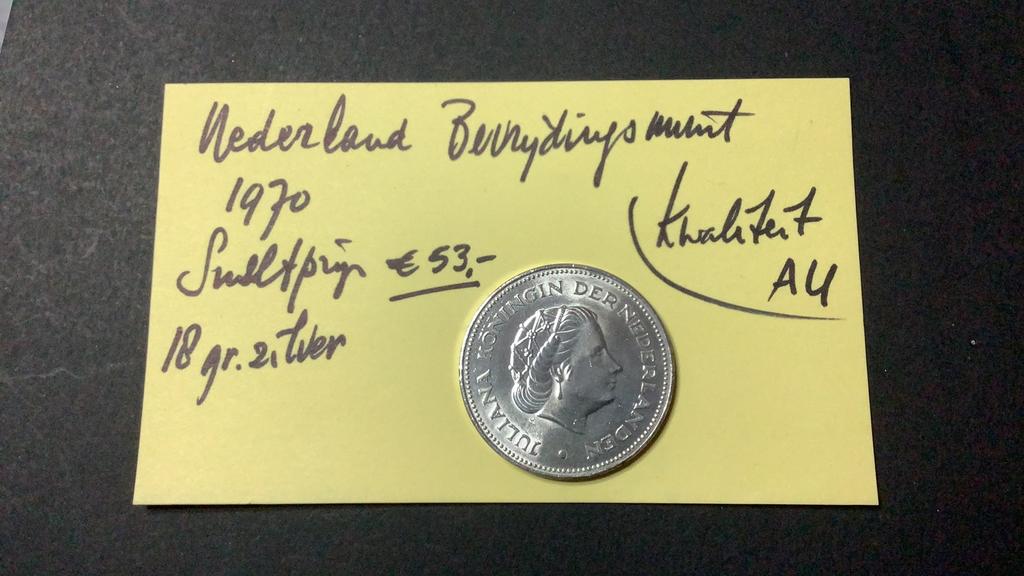 Nederland Bevrydingsmunt
1970
Smeltprijs € 53,-
18 gr. zilver
Kwaliteit
AU
JULIANA KONINGIN DER NEDERLANDEN